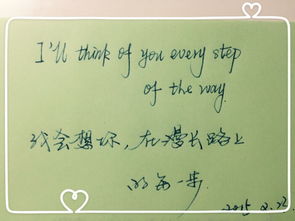 I'll think of you every step
of the way.
我会想你，在漫长路上
的每一步
2015.2.22